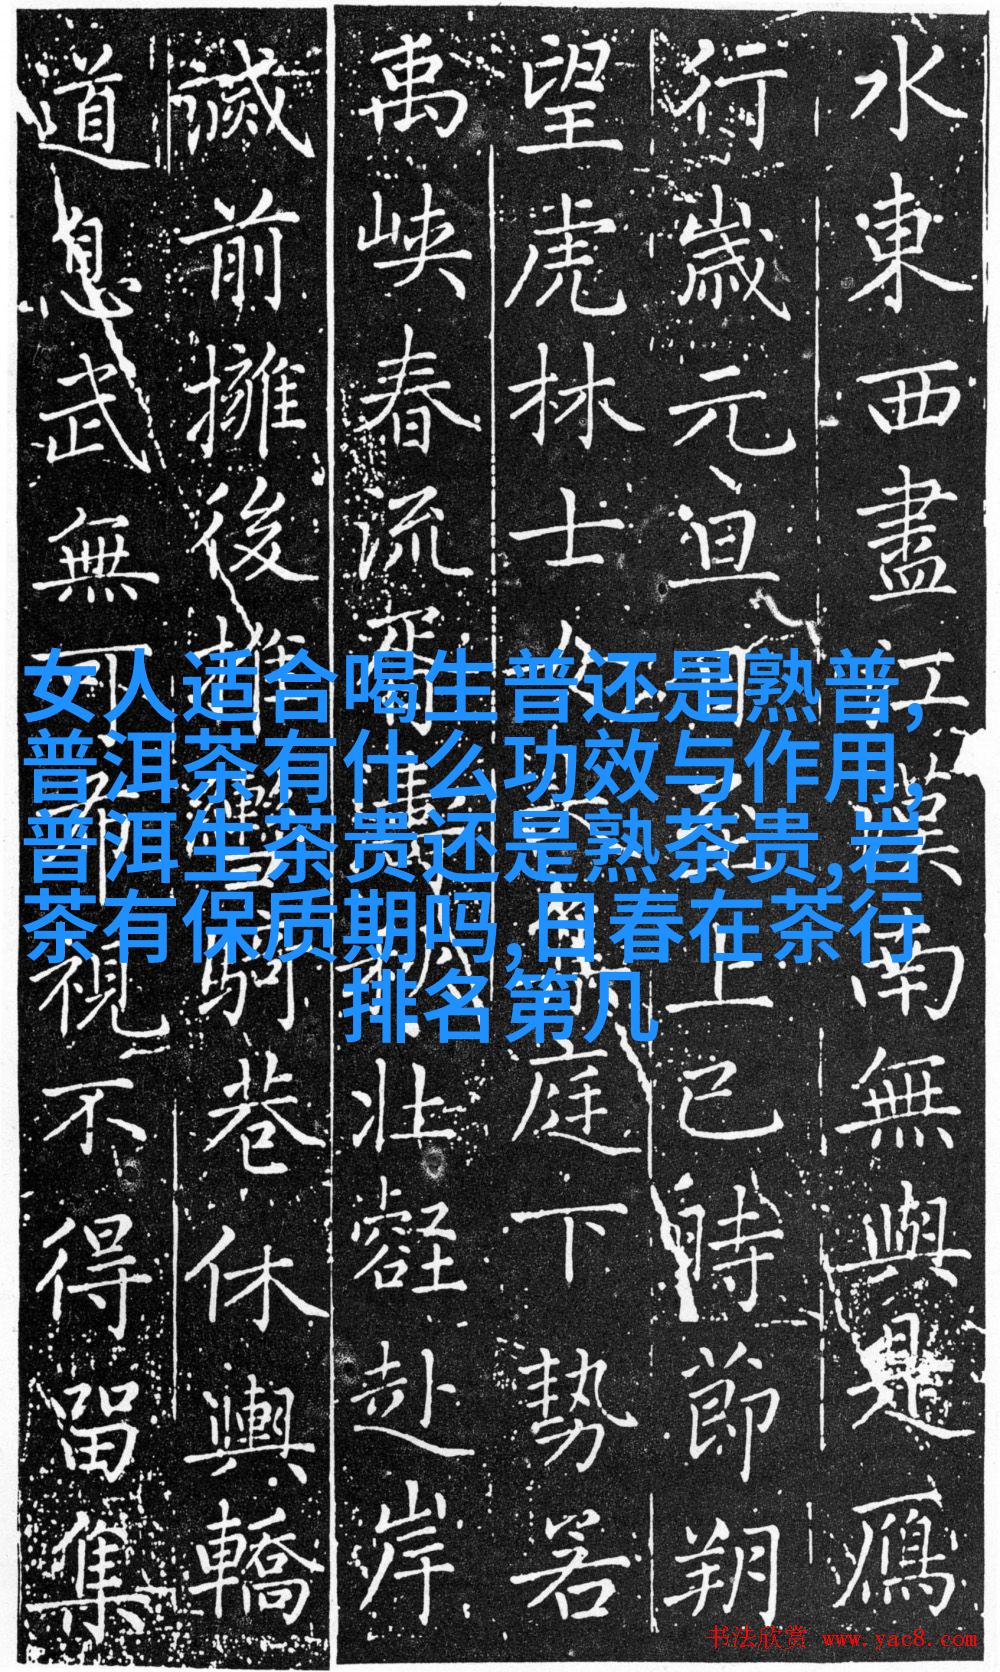 女人适合喝生普还是熟普,
普洱茶有什么功效与作用,
普洱生茶贵还是熟茶贵,岩
茶有保质期吗,日春在茶行
排名第几
水東西盡江漢南無與是鴈
行歲元旦上巳時節朔
望虎林士女庭下勢若
禹峽春流胥濤秋壯壑赴岸
前擁後巷休輿轎
道息武無可視不得留集
书法欣赏 www.yac8.com